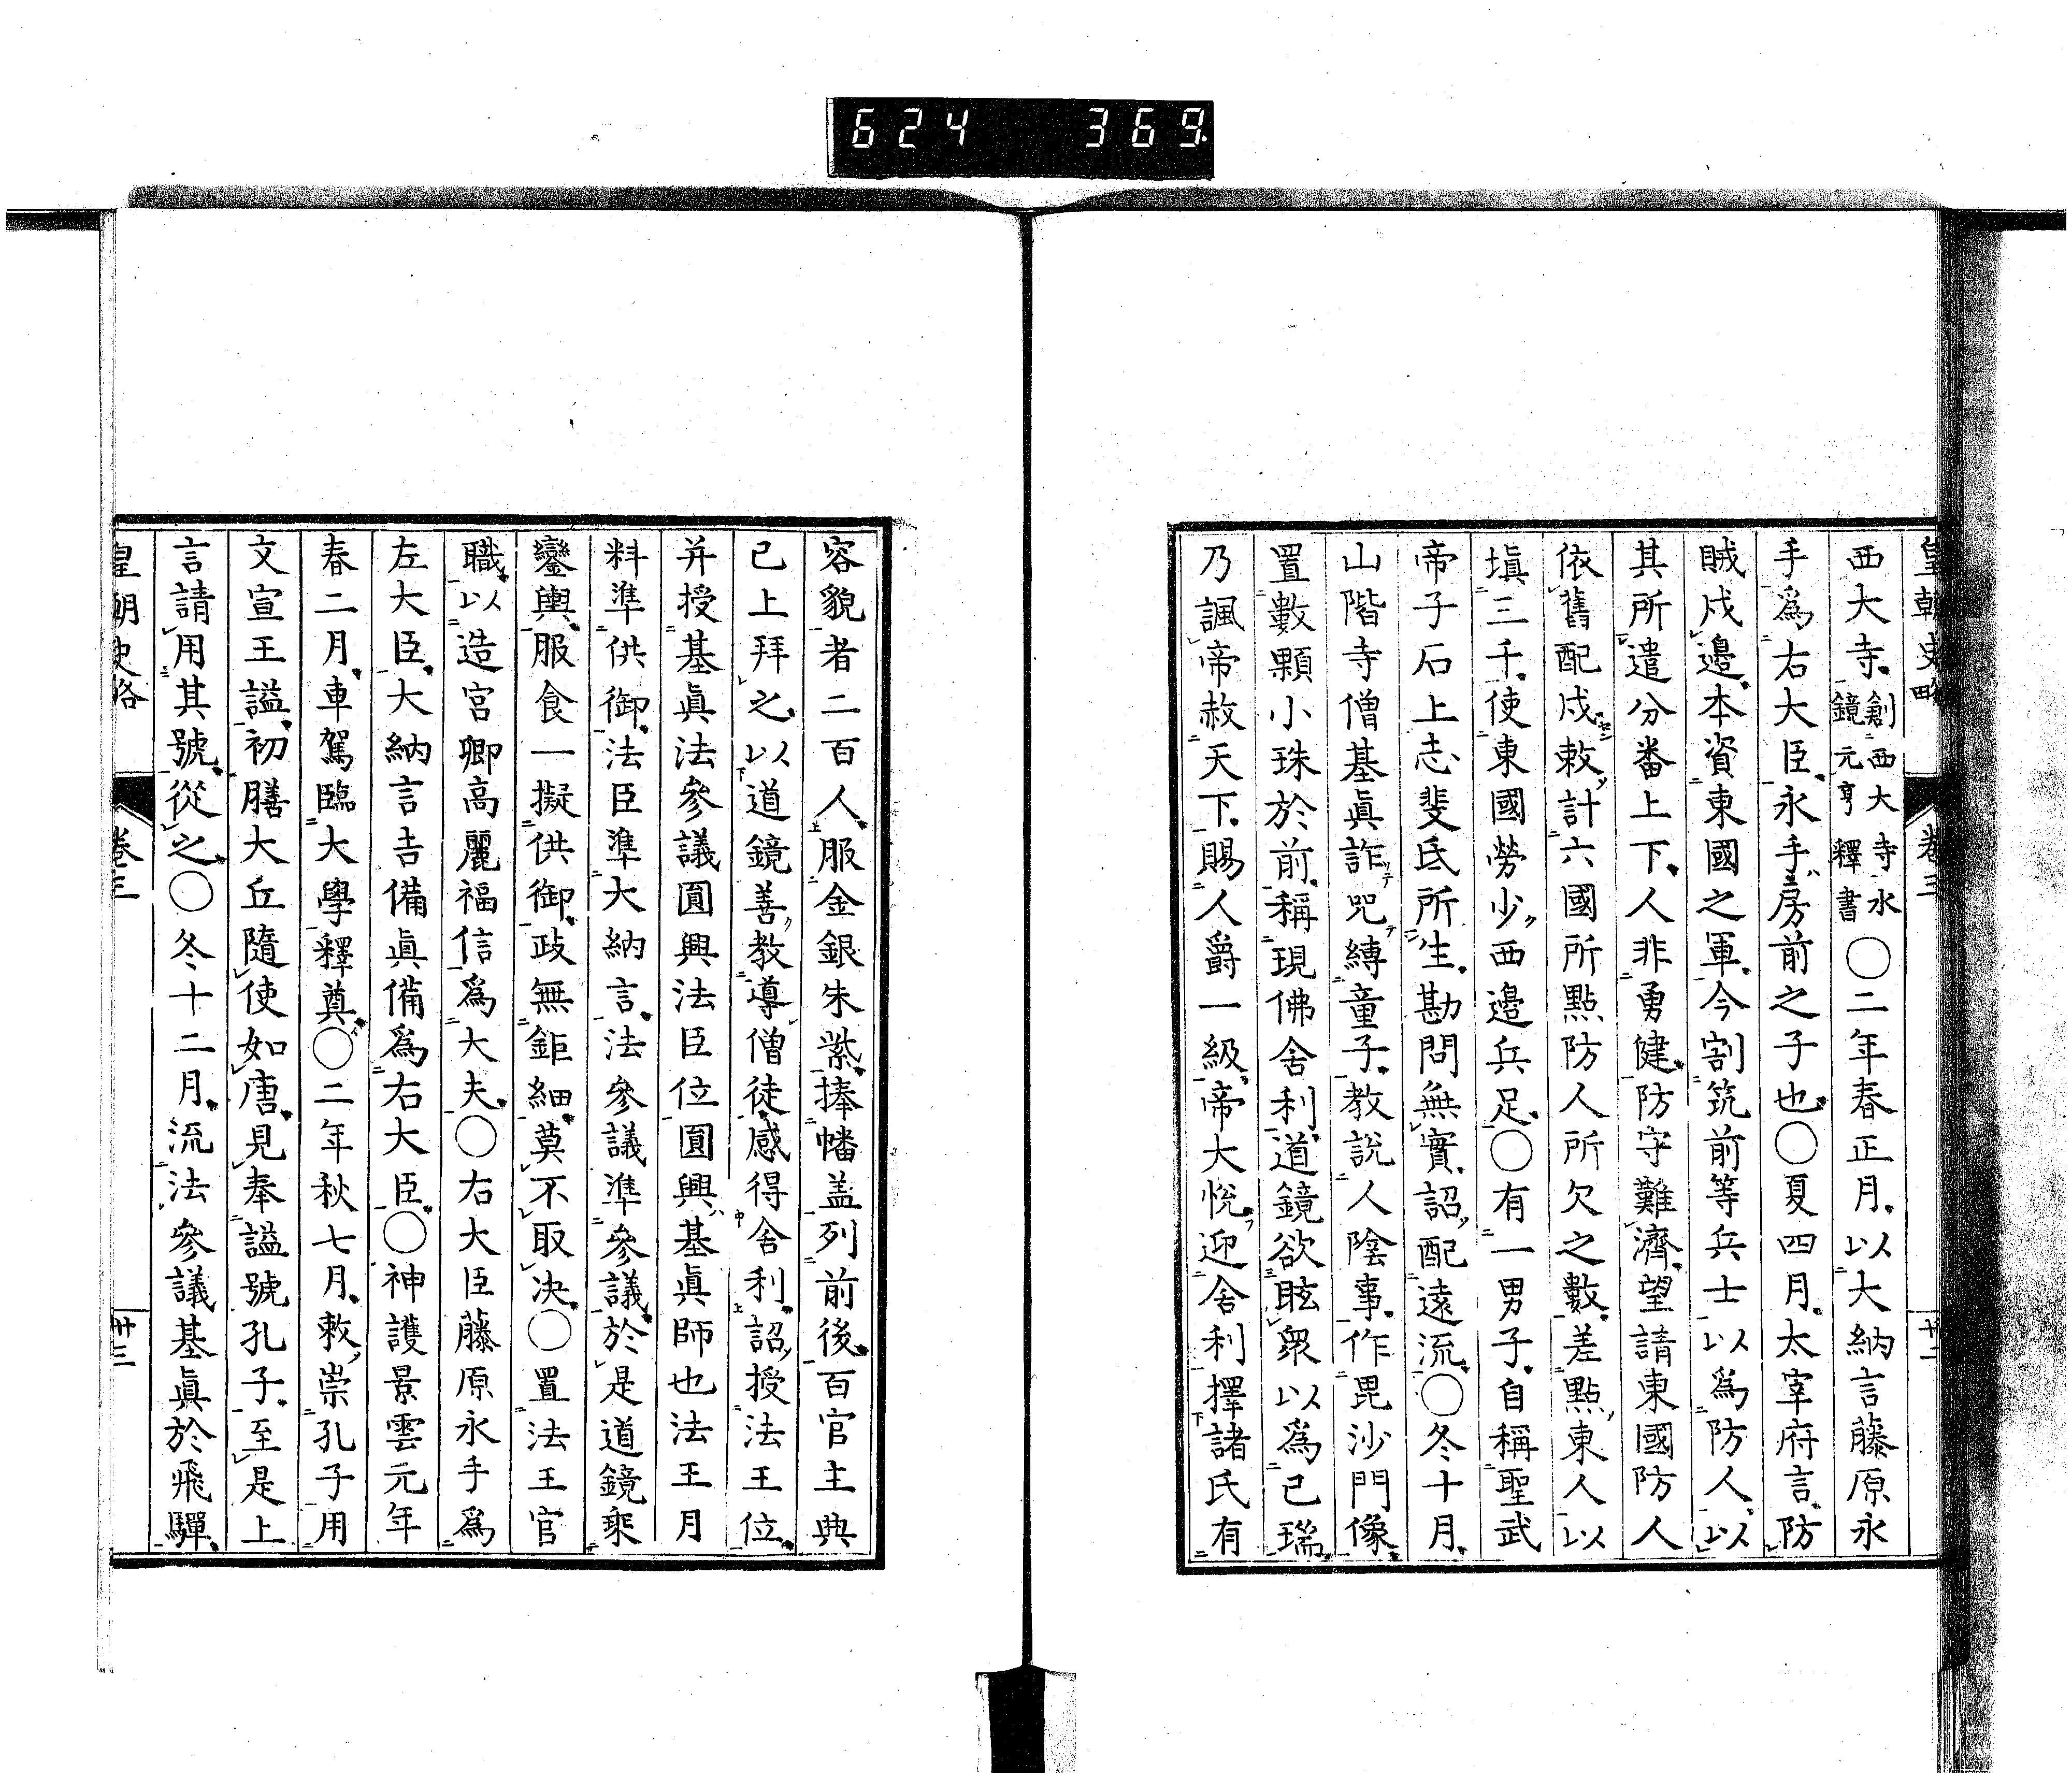 624 369
皇朝史略 卷三 廿二
西大寺、創西大寺水鏡元亨釋書〇二年春正月、以大納言藤原永
手爲右大臣、永手房前之子也〇夏四月、太宰府言、防
賊戍邊、本資東國之軍、今割筑前等兵士以爲防人、以
其所遣分番上下、人非勇健、防守難濟、望請東國防人
依舊配戍、敕計六國所點防人所欠之數、差點東人以
塡三千、使東國勞少、西邊兵足、〇有一男子、自稱聖武
帝子石上志斐氏所生、勘問無實、詔配遠流、〇冬十月、
山階寺僧基眞詐咒縛童子、教說人陰事、作毘沙門像、
置數顆小珠於前、稱現佛舍利、道鏡欲眩衆以爲己瑞、
乃諷帝赦天下、賜人爵一級、帝大悅、迎舍利擇諸氏有
容貌者二百人、服金銀朱紫、捧幡盖列前後、百官主典
已上拜之、以道鏡善教導僧徒、感得舍利、詔授法王位、
并授基眞法參議圓興法臣位、圓興基眞師也法王月
料準供御、法臣準大納言、法參議準參議、於是道鏡乘
鑾輿、服食一擬供御、政無鉅細、莫不取决、〇置法王宮
職、以造宮卿高麗福信爲大夫、〇右大臣藤原永手爲
左大臣、大納言吉備眞備爲右大臣、〇神護景雲元年
春二月、車駕臨大學釋奠、〇二年秋七月、敕崇孔子用
文宣王謚、初膳大丘隨使如唐、見奉謚號孔子、至是上
言請用其號、從之、〇冬十二月、流法參議基眞於飛驒、
皇朝史略 卷三 廿三